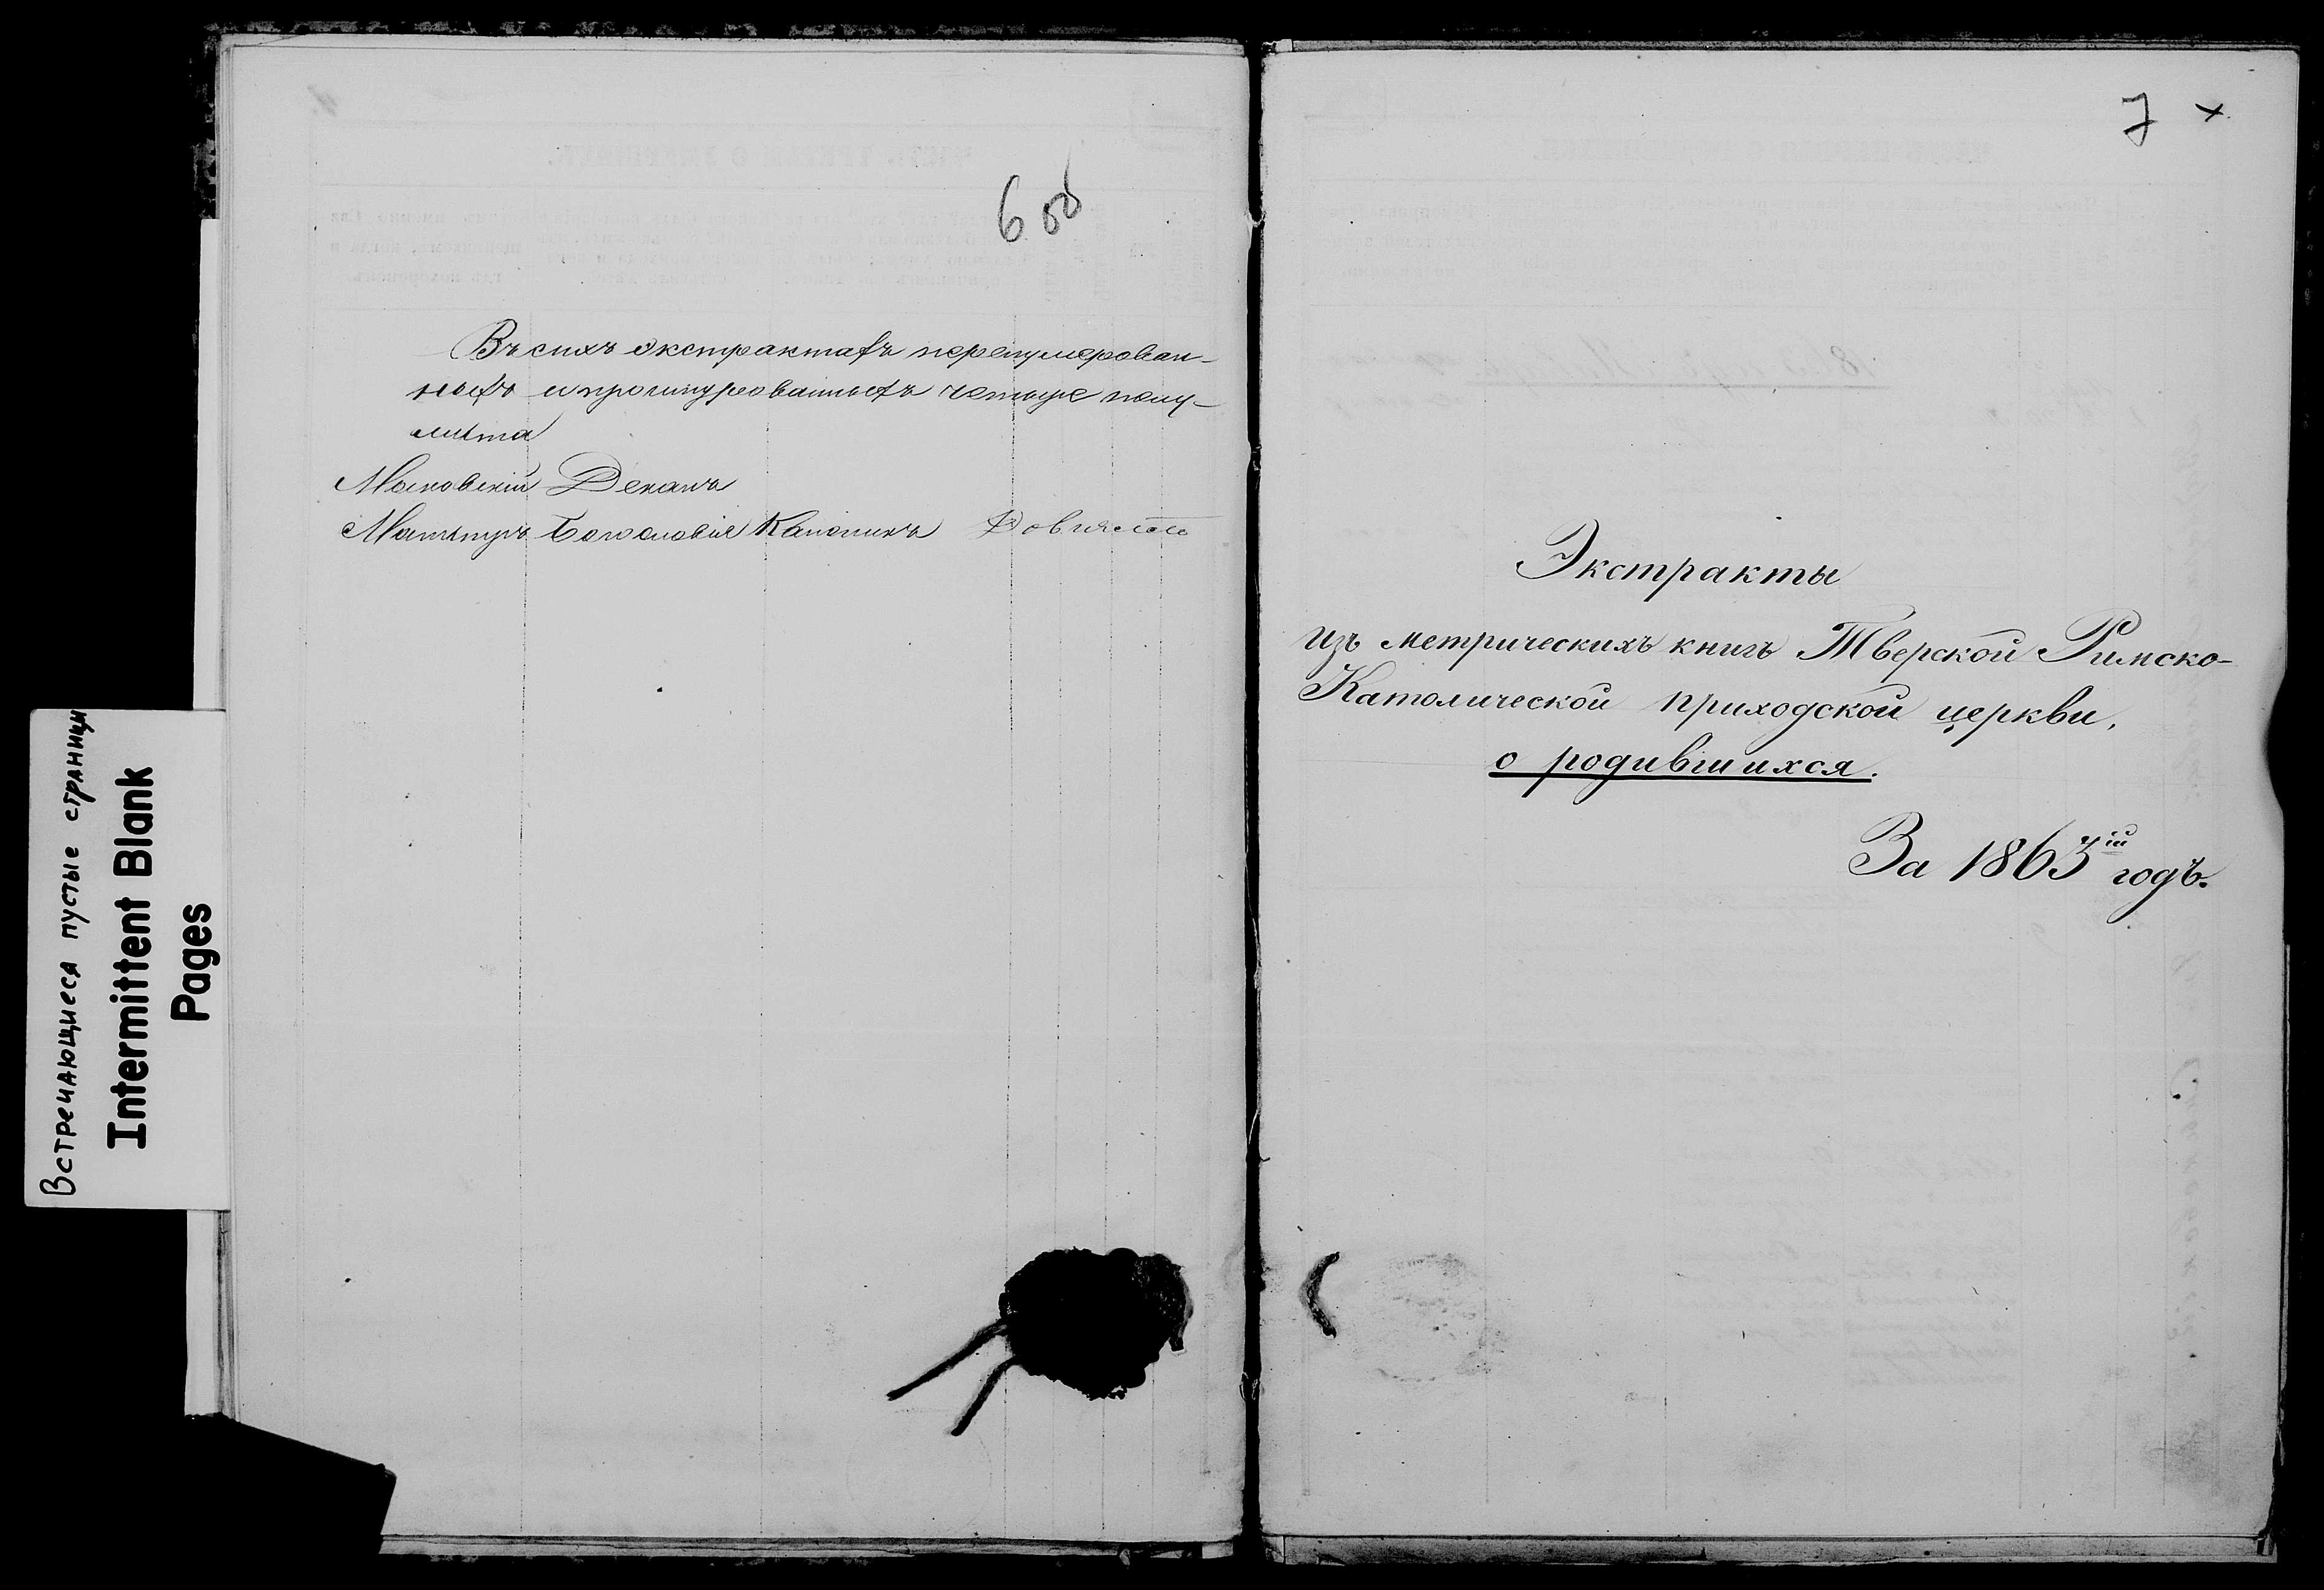 Встречающиеся пустые страницы
Intermittent Blank
Pages
6 об
Въ сихъ экстрактахъ перенумерован-
ныхъ и прошнурованныхъ четыре полу-
листа
Московскій Деканъ
Магистръ Богословія Каноникъ
7 ×
Экстракты
изъ метрическихъ книгъ Тверской Римско-
Католической приходской церкви,
о родившихся.
За 1863ій годъ.